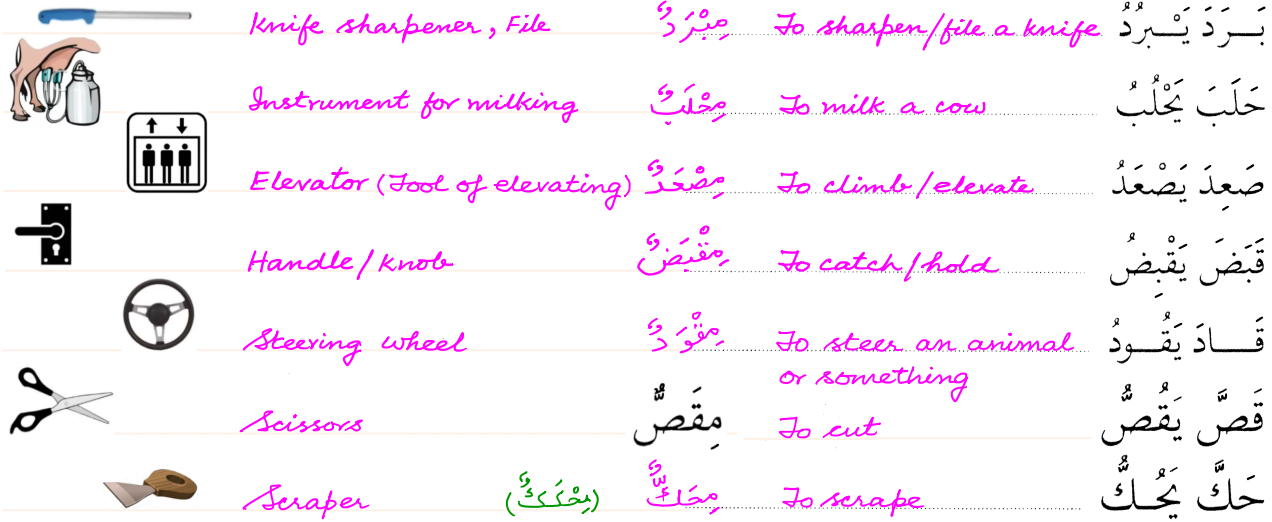 Knife sharpener, File مِبْرَدٌ To sharpen/file a knife بَــرَدَ يَبْــرُدُ
Instrument for milking مِحْلَبٌ To milk a cow حَلَبَ يَحْلُبُ
Elevator (Tool of elevating) مِصْعَدٌ To climb/elevate صَعِدَ يَصْعَدُ
Handle/Knob مِقْبَضٌ To catch/hold قَبَضَ يَقْبِضُ
Steering wheel مِقْوَدٌ To steer an animal قَـــادَ يَقُـــودُ
or something
Scissors مِقَصٌّ To cut قَصَّ يَقُصُّ
Scraper (مِحْكَكٌ) مِحَكٌّ To scrape حَكَّ يَحُـكُّ